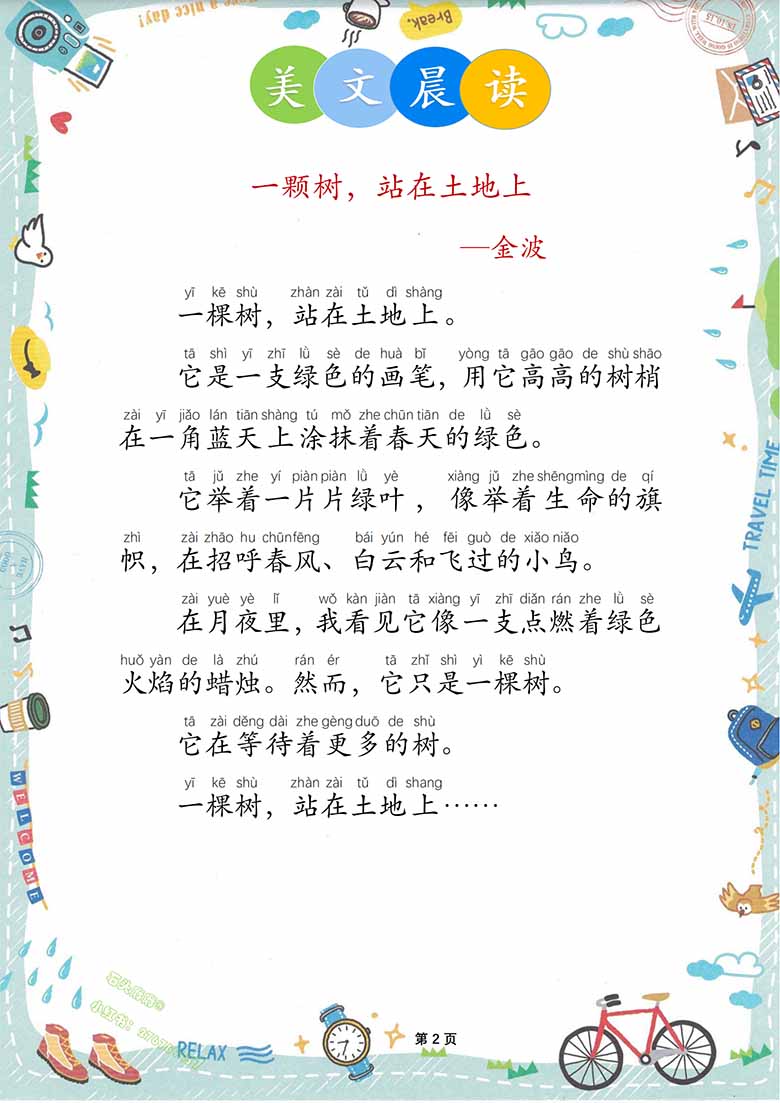 have a nice day!
Break.
美文晨读
一颗树，站在土地上
—金波
yī kē shù zhàn zài tǔ dì shàng
一棵树，站在土地上。
tā shì yī zhī lǜ sè de huà bǐ yòng tā gāo gāo de shù shāo
它是一支绿色的画笔，用它高高的树梢
zài yī jiǎo lán tiān shàng tú mǒ zhe chūn tiān de lǜ sè
在一角蓝天上涂抹着春天的绿色。
tā jǔ zhe yí piàn piàn lǜ yè xiàng jǔ zhe shēng mìng de qí
它举着一片片绿叶，像举着生命的旗
zhì zài zhāo hu chūn fēng bái yún hé fēi guò de xiǎo niǎo
帜，在招呼春风、白云和飞过的小鸟。
zài yuè yè lǐ wǒ kàn jiàn tā xiàng yī zhī diǎn rán zhe lǜ sè
在月夜里，我看见它像一支点燃着绿色
huǒ yàn de là zhú rán ér tā zhǐ shì yì kē shù
火焰的蜡烛。然而，它只是一棵树。
tā zài děng dài zhe gèng duō de shù
它在等待着更多的树。
yī kē shù zhàn zài tǔ dì shang
一棵树，站在土地上……
TRAVEL TIME
WELCOME
RELAX
第 2 页